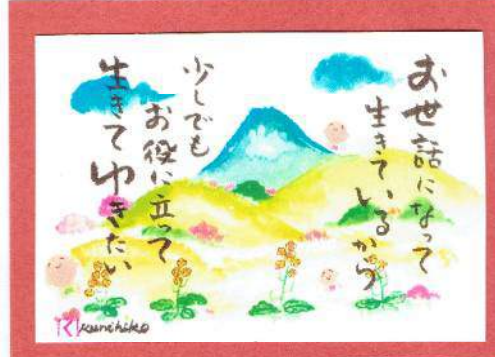 お世話になって
生きているから
少しでも
お役に立って
生きてゆきたい
Kunihiko